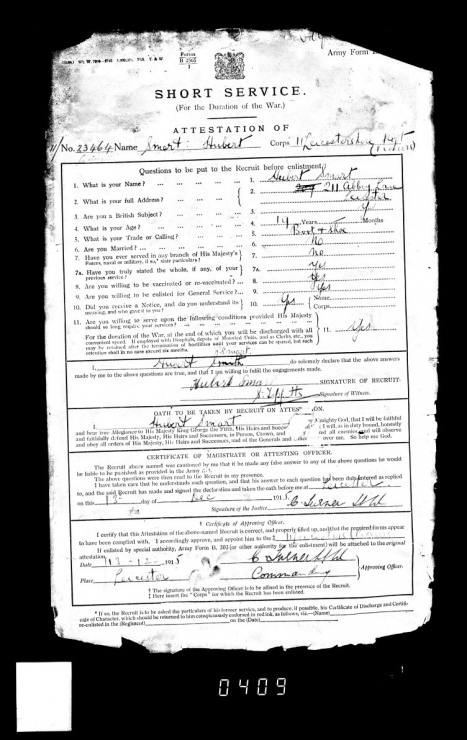 Forms
B 2505
1
Army Form
SHORT SERVICE.
(For the Duration of the War.)
ATTESTATION OF
No. 23464 Name Smart Hubert Corps 11 Leicestershire
Questions to be put to the Recruit before enlistment.
1. What is your Name? ... 1. Hubert Smart
2. What is your full Address? ... 2. 211 Abbey Lane
Leicester
3. Are you a British Subject? ... 3.
4. What is your Age? ... 4. 19 Years Months
5. What is your Trade or Calling? ... 5. Boot & Shoe
6. Are you Married? ... 6. No
7. Have you ever served in any branch of His Majesty's
Forces, naval or military, if so,* which particulars? 7. No
7a. Have you truly stated the whole, if any, of your
previous service? 7a. Yes
8. Are you willing to be vaccinated or re-vaccinated? ... 8. Yes
9. Are you willing to be enlisted for General Service? ... 9. Yes
10. Did you receive a Notice, and do you understand its
meaning, and who gave it to you? 10. Yes Name
Corps
11. Are you willing to serve upon the following conditions provided His Majesty
should so long require your services? 11. Yes
For the duration of the War, at the end of which you will be discharged with all
convenient speed. If employed with Hospitals, depots of Mounted Units, and as Clerks, etc., you
may be retained after the termination of hostilities until your services can be spared, but such
retention shall in no case exceed six months.
I, Hubert Smart do solemnly declare that the above answers
made by me to the above questions are true, and that I am willing to fulfil the engagements made.
Hubert Smart SIGNATURE OF RECRUIT
Signature of Witness.
OATH TO BE TAKEN BY RECRUIT ON ATTESTATION.
I, Hubert Smart Almighty God, that I will be faithful
and bear true Allegiance to His Majesty King George the Fifth, His Heirs and Successors I will, as in duty bound, honestly
and faithfully defend His Majesty, His Heirs and Successors, in Person, Crown, and all enemies, and will observe
and obey all orders of His Majesty, His Heirs and Successors, and of the Generals and over me. So help me God.
CERTIFICATE OF MAGISTRATE OR ATTESTING OFFICER.
The Recruit above named was cautioned by me that if he made any false answer to any of the above questions he would
be liable to be punished as provided in the Army Act.
The above questions were then read to the Recruit in my presence.
I have taken care that he understands each question, and that his answer to each question has been duly entered as replied
to, and the said Recruit has made and signed the declaration and taken the oath before me at Leicester
on this 13 day of Dec 1915
Signature of the Justice C Turner
† Certificate of Approving Officer.
I certify that this Attestation of the above-named Recruit is correct, and properly filled up, and that the required forms appear
to have been complied with. I accordingly approve, and appoint him to the ‡
If enlisted by special authority, Army Form B. 203 (or other authority for the enlistment) will be attached to the original
attestation.
Date 13-12-1915
Place Leicester
C Turner
Commanding
Approving Officer.
† The signature of the Approving Officer is to be affixed in the presence of the Recruit.
‡ Here insert the "Corps" for which the Recruit has been enlisted.
* If so, the Recruit is to be asked the particulars of his former service, and to produce, if possible, his Certificate of Discharge and Certifi-
cate of Character, which should be returned to him conspicuously endorsed in red ink, as follows, viz.—(Name)
re-enlisted in the (Regiment) on the (Date)
0409